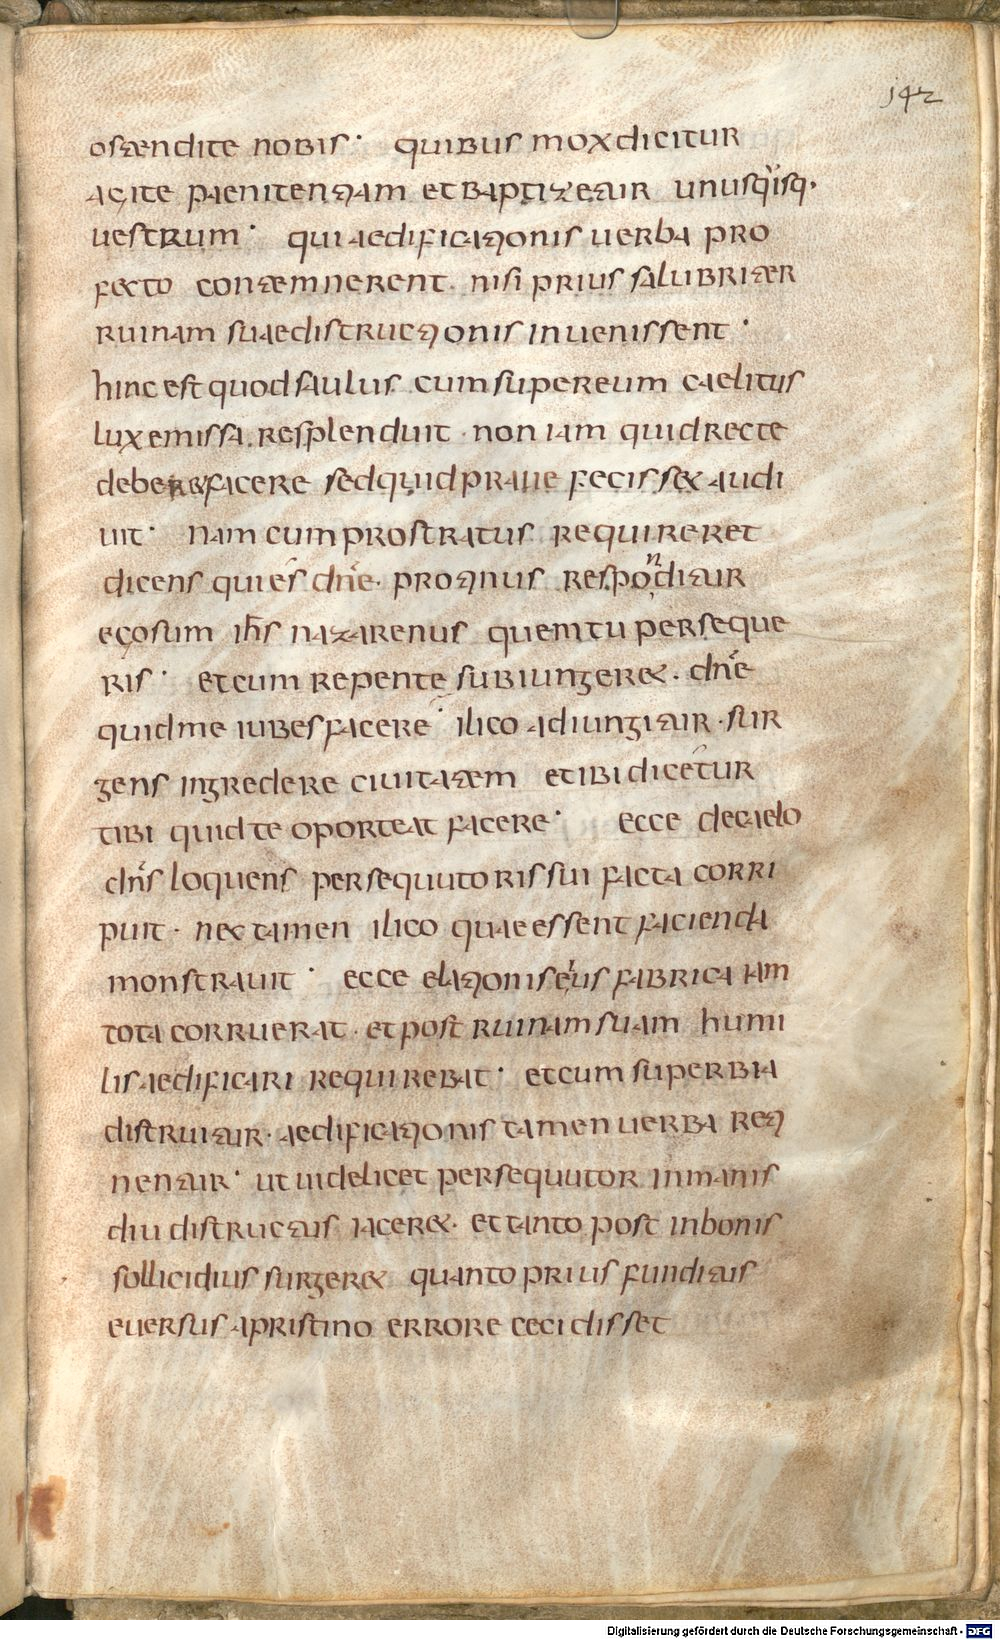 142
ostendite nobis· quibus mox dicitur
agite paenitentiam et baptizetur unusq'isq·
uestrum· qui aedificationis uerba pro
fecto contemnerent· nisi prius salubriter
ruinam suae distructionis inuenissent·
hinc est quod saulus cum super eum caelitus
lux emissa resplenduit· non iam quid recte
deberet facere sed quid praue fecisset audi
uit· nam cum prostratus requireret
dicens qui es dn̄e· protinus responditur
ego sum ih̄s nazarenus quem tu perseque
ris· et cum repente subiungeret· dn̄e
quid me iubes facere· ilico adiungitur· sur
gens ingredere ciuitatem et ibi dicetur
tibi quid te oporteat facere· ecce de caelo
dn̄s loquens persequutoris sui facta corri
puit· nec tamen ilico quae essent facienda
monstrauit· ecce elationis eius fabrica iam
tota corruerat· et post ruinam suam humi
lis aedificari requirebat· et cum superbia
distruitur· aedificationis tamen uerba reti
nentur· ut uidelicet persequutor inmanis
diu distructus iaceret· et tanto post in bonis
sollicidius surgeret quanto prius funditus
euersus a pristino errore cecidisset
Digitalisierung gefördert durch die Deutsche Forschungsgemeinschaft - DFG